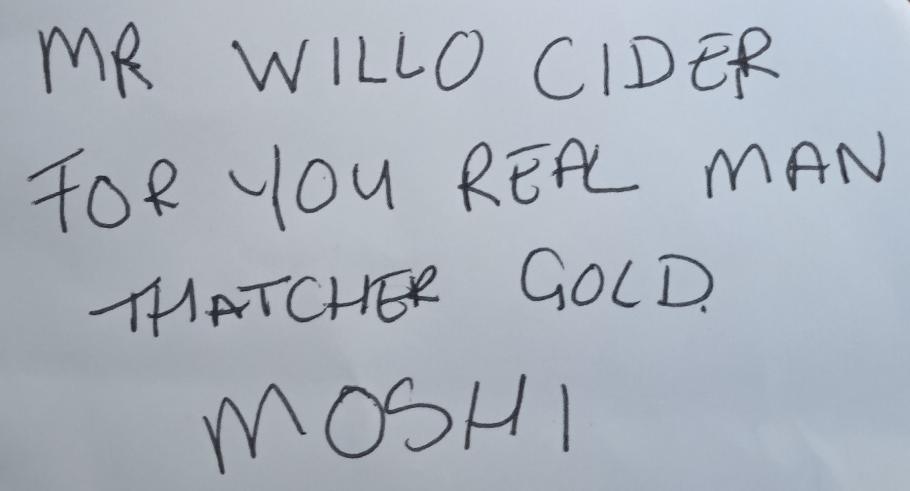 MR WILLO CIDER
FOR YOU REAL MAN
THATCHER GOLD.
MOSHI